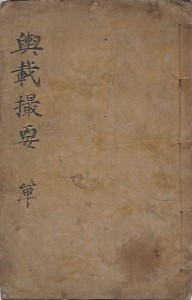 輿載撮要 單